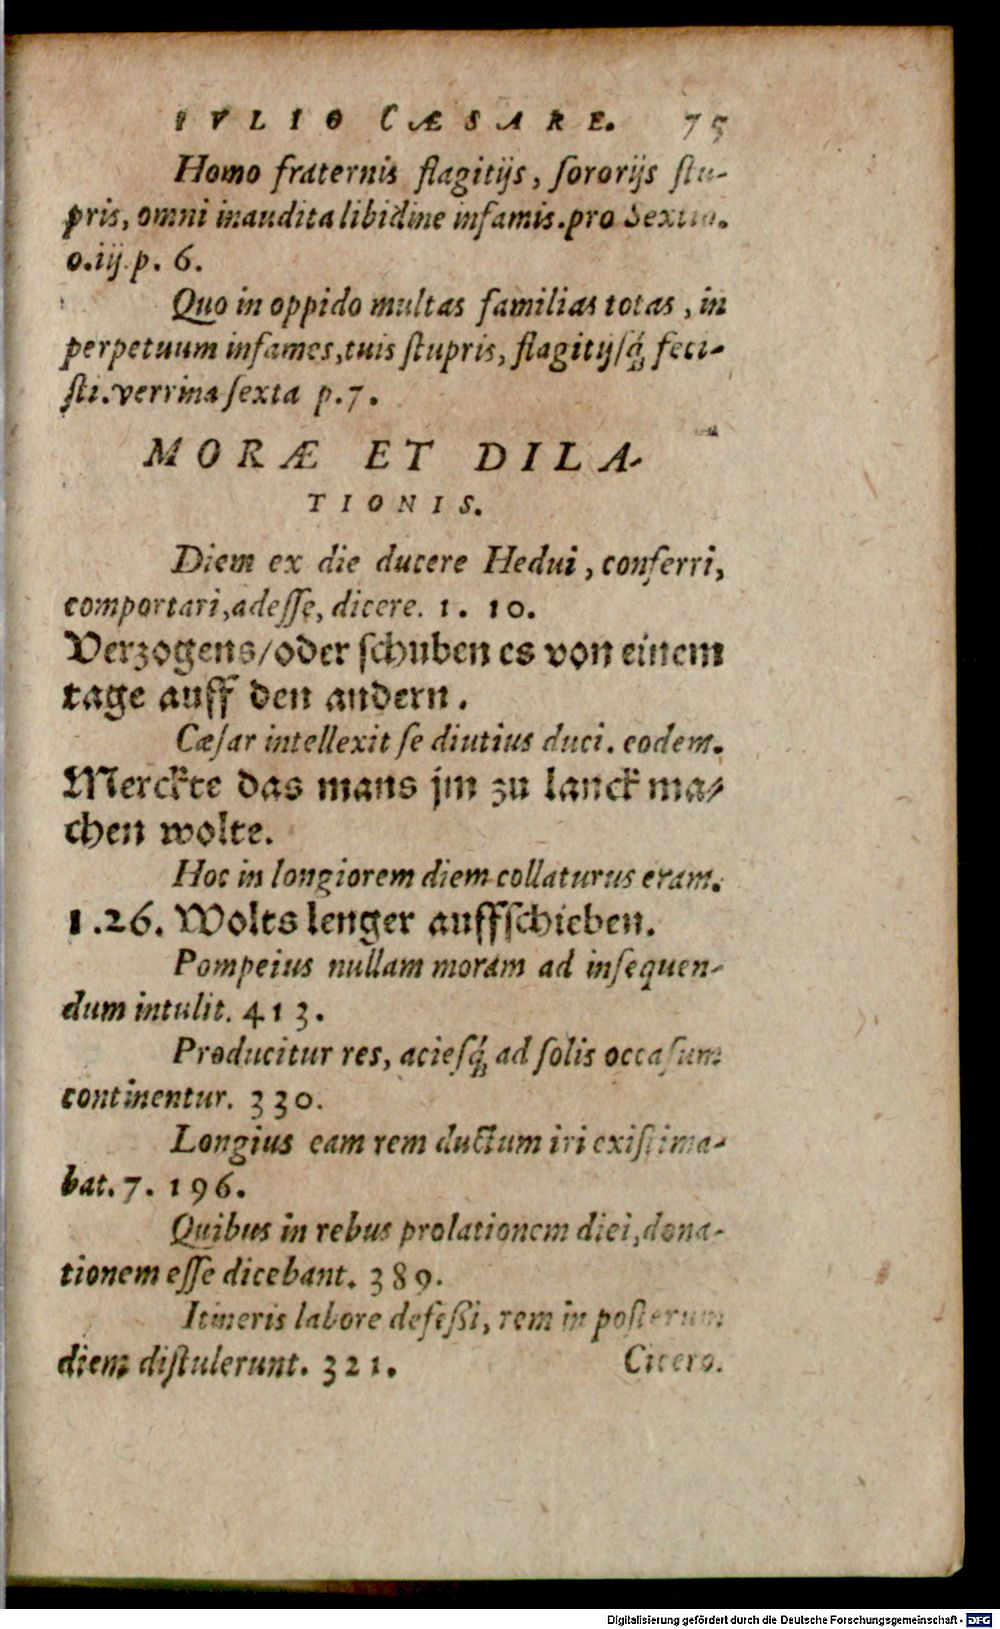 IVLIO CÆSARE. 75
Homo fraternis flagitijs, ſororijs ſtu-
pris, omni inaudita libidine infamis. pro Sextio.
o.iij. p. 6.
Quo in oppido multas familias totas, in
perpetuum infames, tuis ſtupris, flagitijſq́; feci-
ſti. verrina ſexta p. 7.
MORÆ ET DILA-
TIONIS.
Diem ex die ducere Hedui, conferri,
comportari, adeſſe, dicere. 1. 10.
Verzogens/oder ſchuben es von einem
tage auff den andern.
Cæſar intellexit ſe diutius duci. eodem.
Merckte das mans jm zu lanck ma-
chen wolte.
Hoc in longiorem diem collaturus eram.
1. 26. Wolts lenger auffſchieben.
Pompeius nullam moram ad inſequen-
dum intulit. 413.
Producitur res, acieſq́; ad ſolis occaſum
continentur. 330.
Longius eam rem ductum iri exiſtima-
bat. 7. 196.
Quibus in rebus prolationem diei, dona-
tionem eſſe dicebant. 389.
Itineris labore defeßi, rem in poſterum
diem diſtulerunt. 321. Cicero.
Digitalisierung gefördert durch die Deutsche Forschungsgemeinschaft - DFG